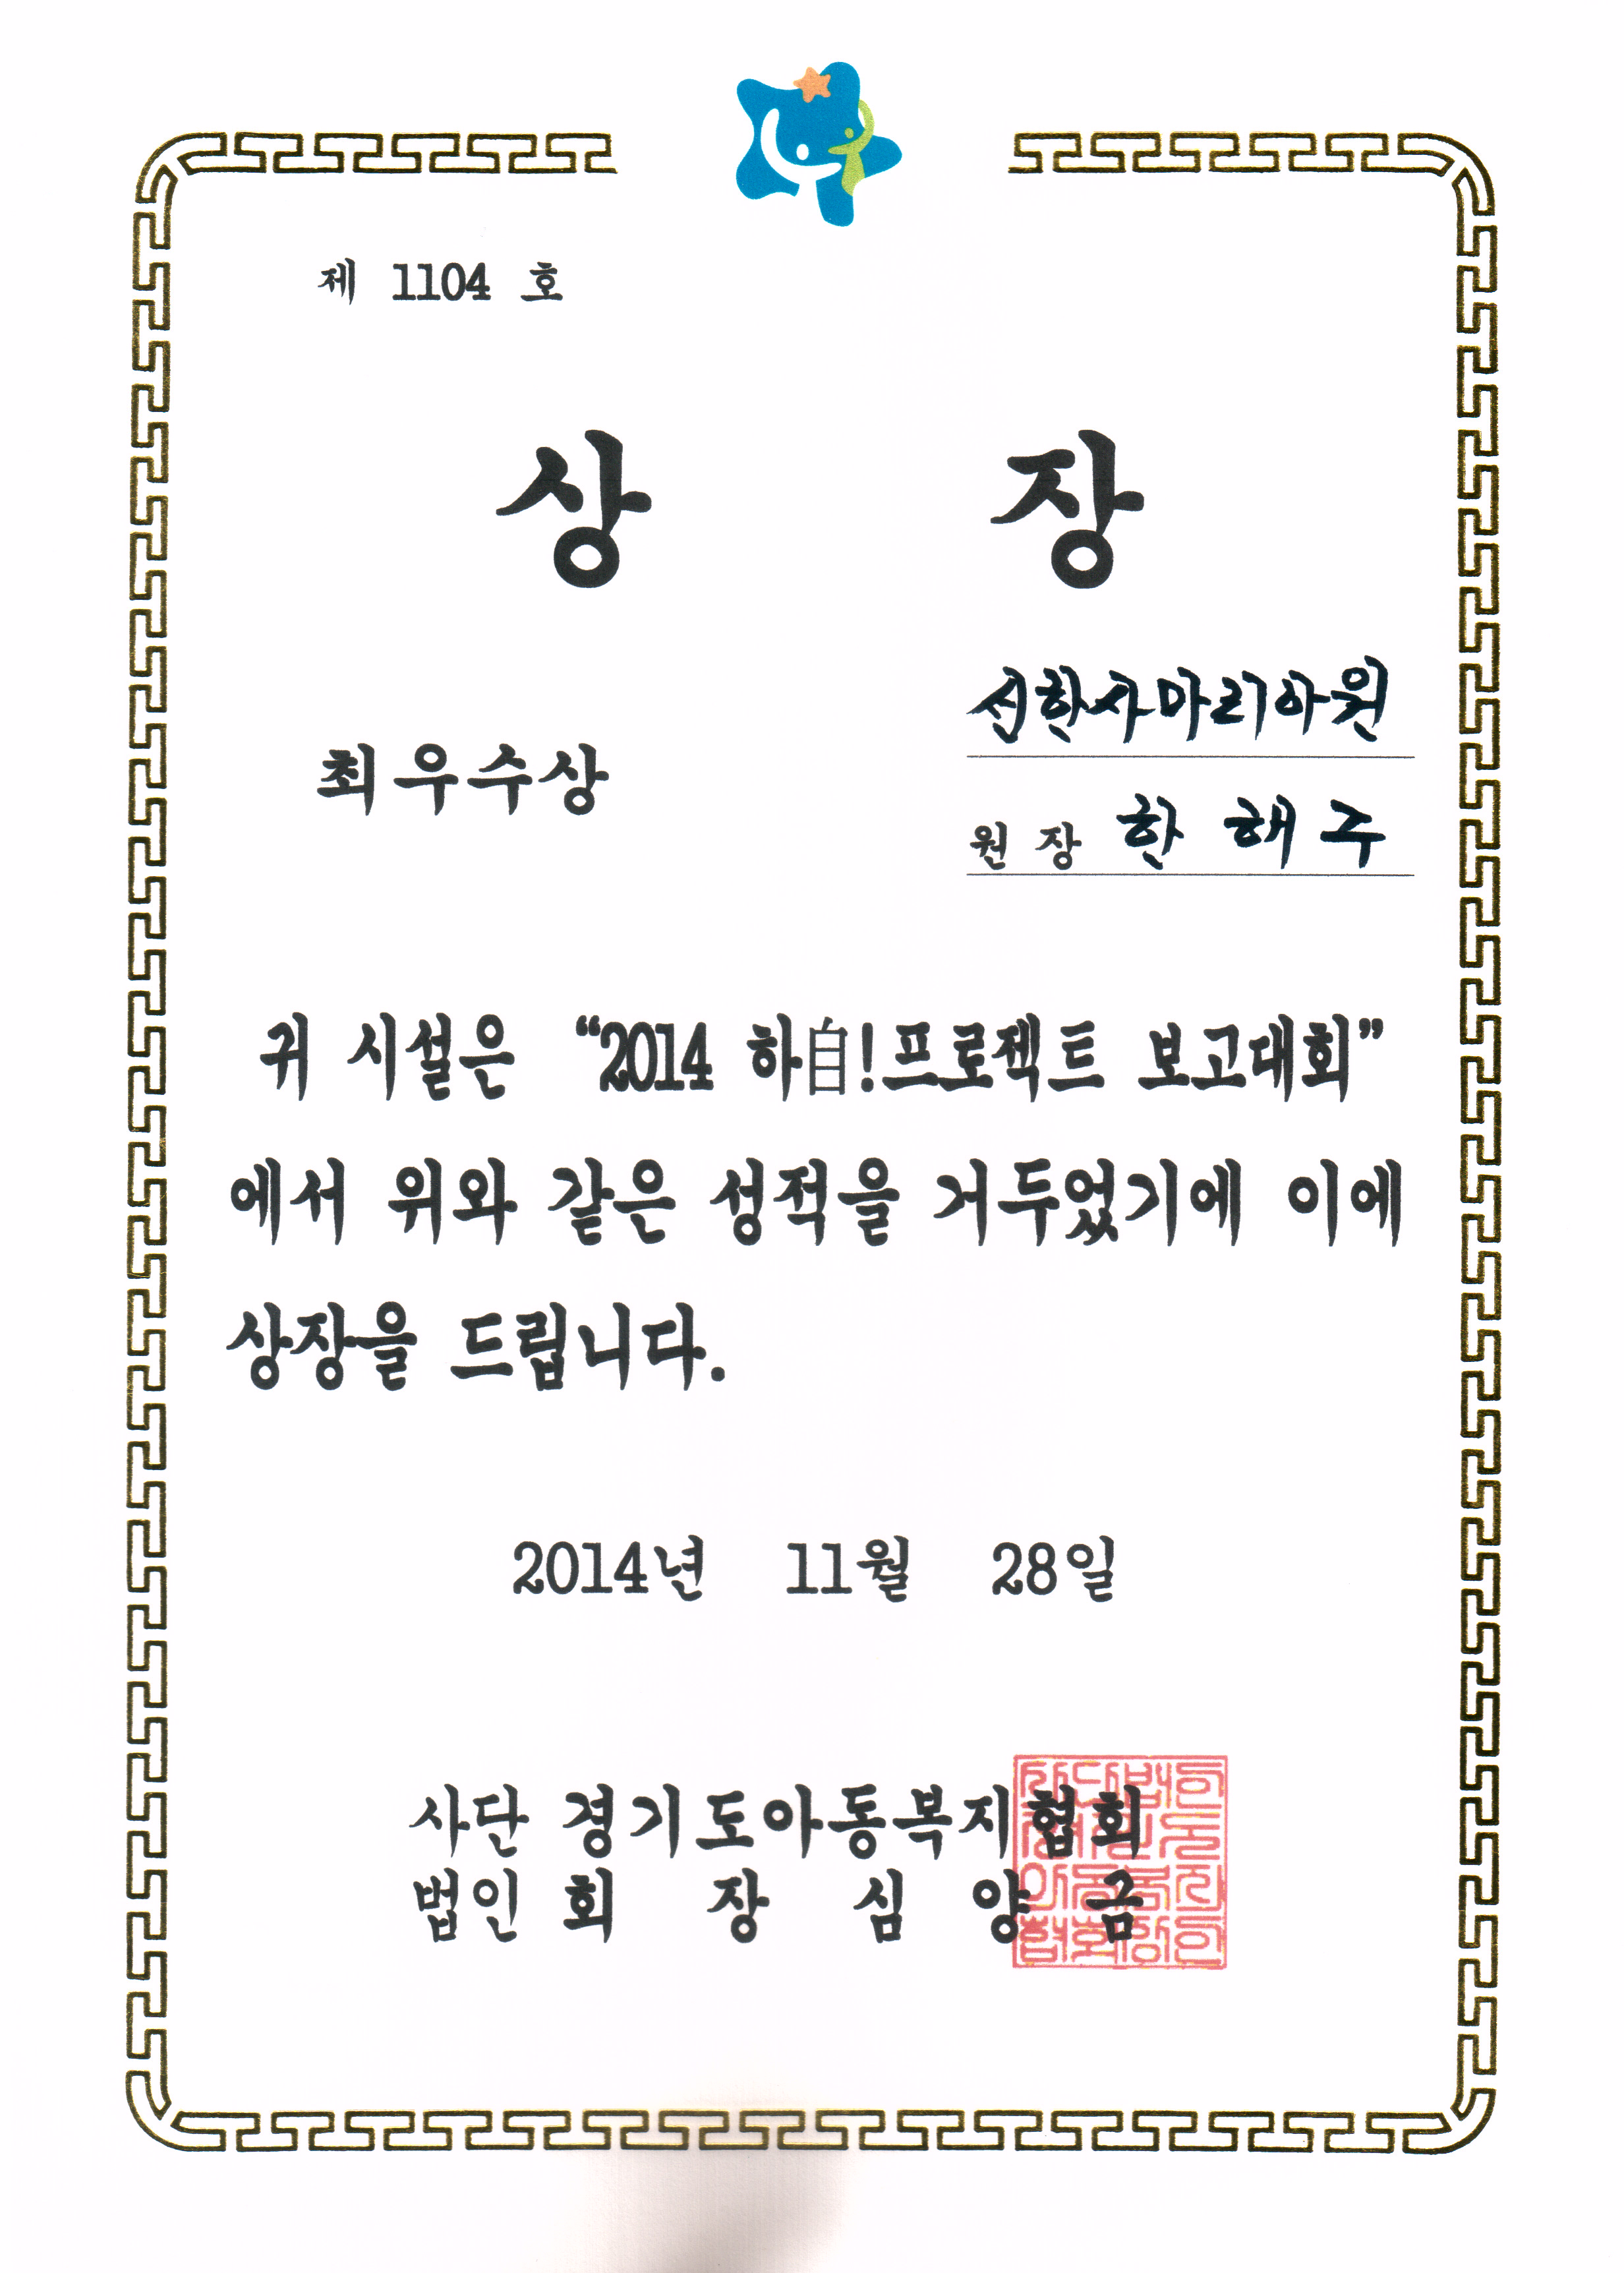 제 1104 호
상 장
최우수상
선한사마리아원
원 장 한 해 주
귀 시설은 “2014 하自!프로젝트 보고대회”
에서 위와 같은 성적을 거두었기에 이에
상장을 드립니다.
2014년 11월 28일
사단 경기도아동복지협회
법인 회 장 심 양 금